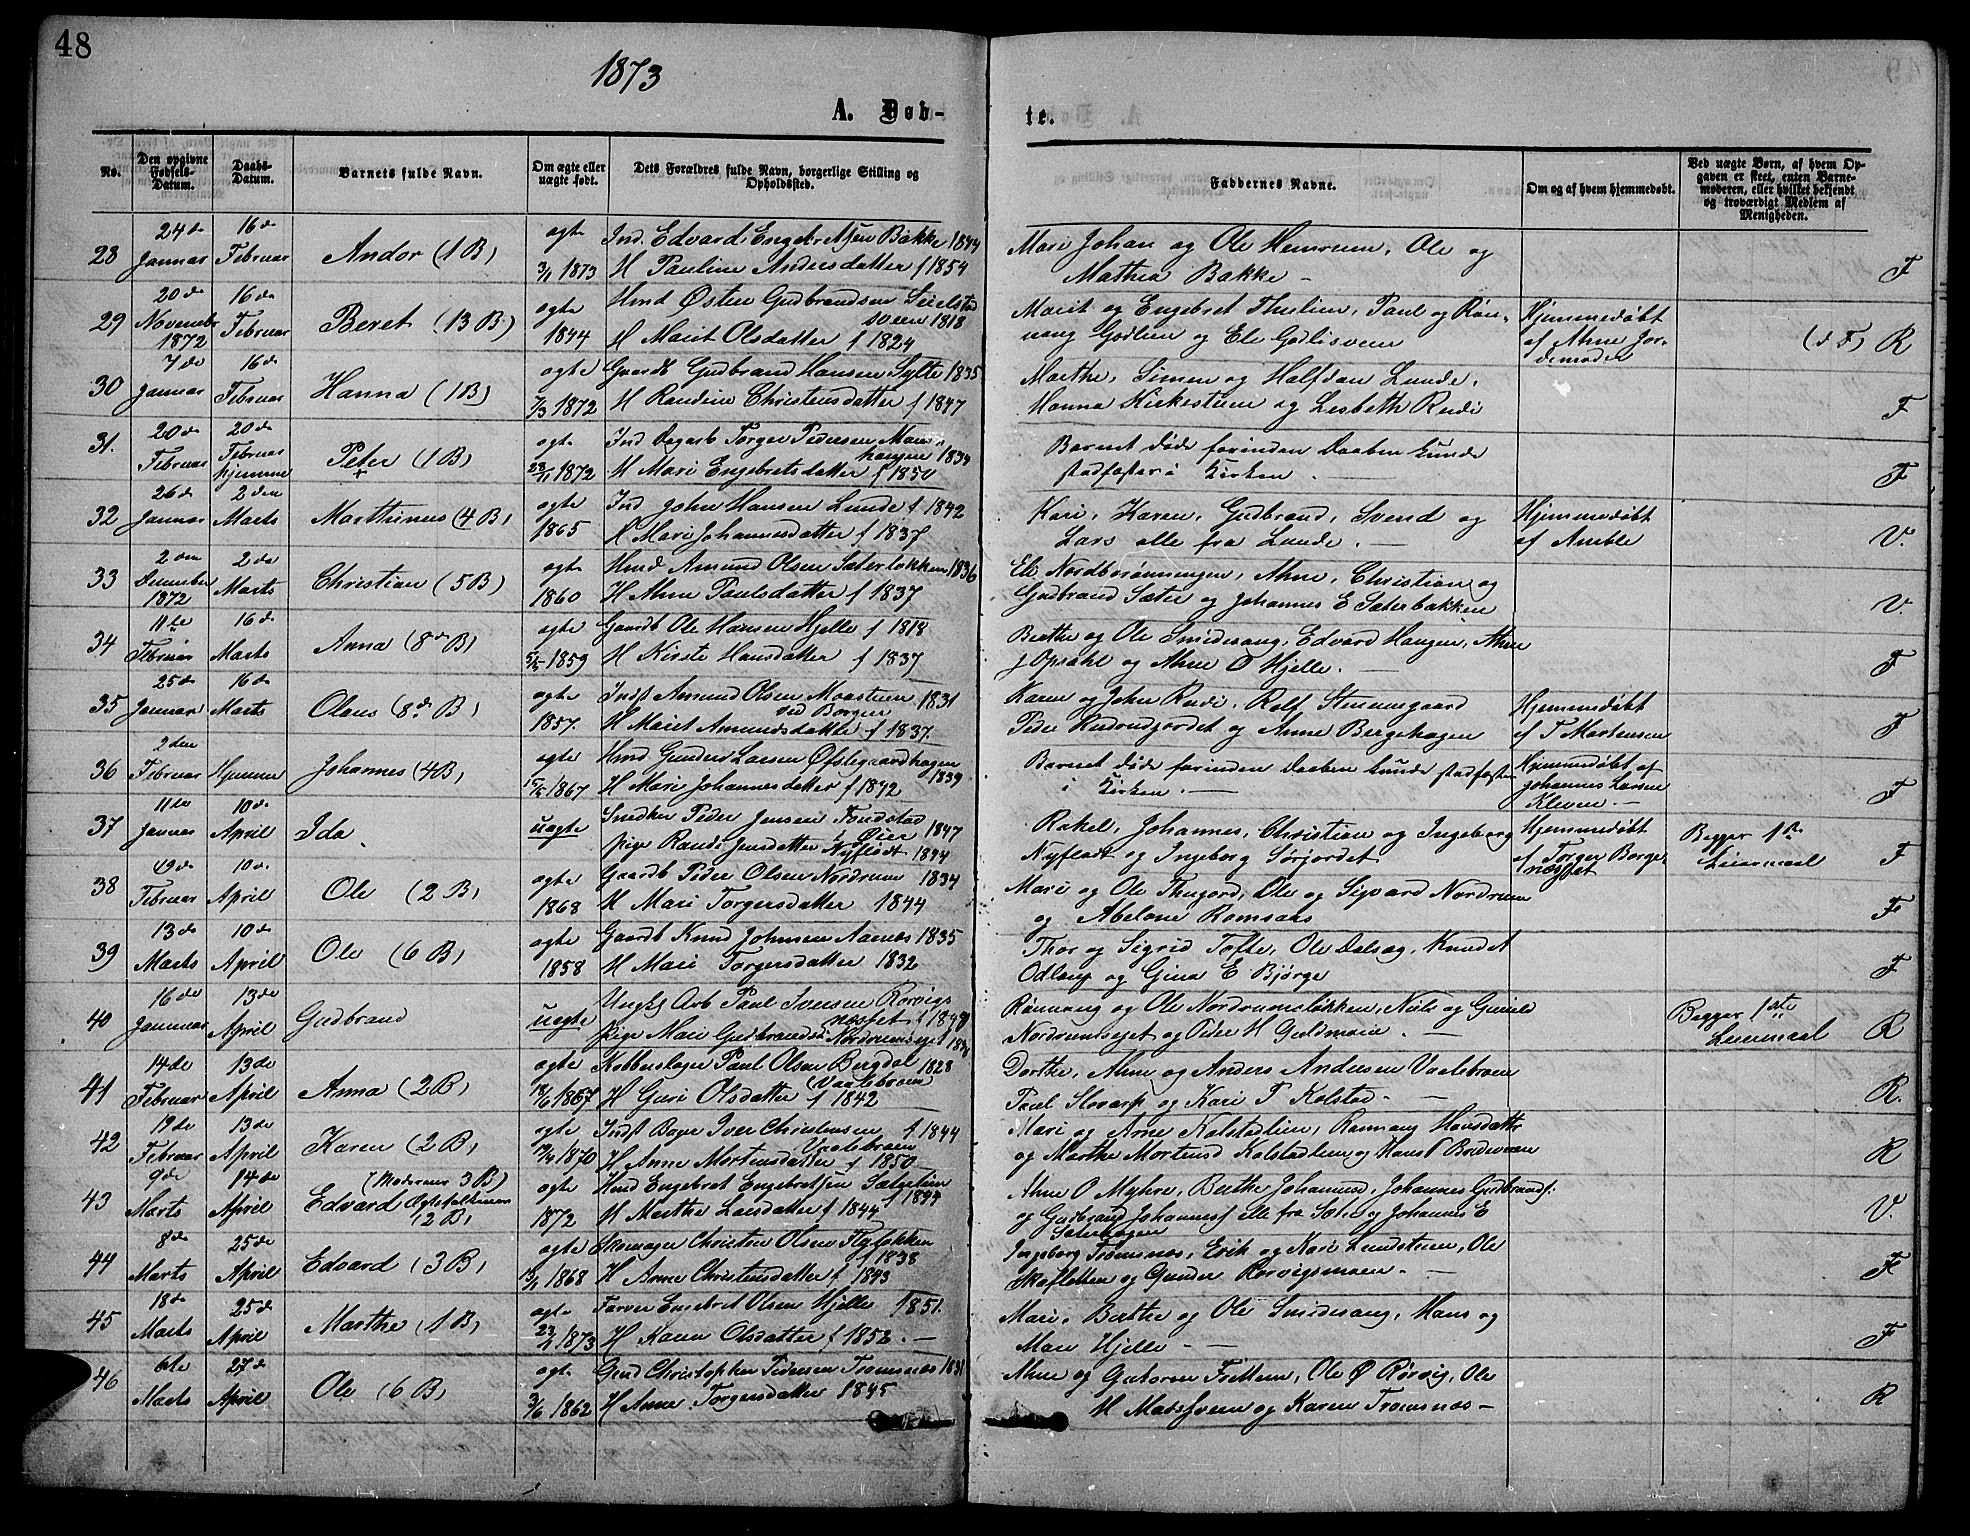 48
1873
A. Døb-
te.
No.
Den opgivne Fødsels-Datum.
Daabs-Datum.
Barnets fulde Navn.
Om ægte eller uægte født.
Dets Forældres fulde Navn, borgerlige Stilling og Opholdssted.
Faddernes Navne.
Om og af hvem hjemmedøbt.
Ved uægte Børn, af hvem Opgaven er skeet, enten Barnemoderen, eller hvilket bekjendt og troværdigt Medlem af Menigheden.
28 24de Januar 16de Februar Andor (1 B) ægte 3/1 1873
Ind. Edvard Engebretsen Bakke 1844
H Pauline Andersdatter f 1854
Mari Johan og Ole Hemrum, Ole og
Mathea Bakke — F
29 20de Novembr 1872 16de Februar Beret (13 B) ægte 1844
Hmd Østen Gudbrandsen Seielstad
sveen 1818
H Marit Olsdatter f 1824
Marit og Engebret Thulien, Paul og Røn-
nang Godlien og Eli Godlisveen
Hjemmedøbt
af Ahne Jor-
demoder
(d F) R
30 7de Januar 16de Februar Hanna (1 B) ægte 7/3 1872
Gaardb Gudbrand Hansen Sylte 1835
H Randine Christensdatter f 1847
Marthe, Simen og Halfdan Lunde,
Hanna Kirkestuen og Lisbeth Rudi F
31. 20de Februar 20de Februar hjemme Peter (1 B) ægte 23/11 1872
Ind Dagarb Torger Pedersen
haugen 1834
H Mari Engebretsdatter f 1850
Barnet døde forinden Daaben kunde
stadfæstes i Kirken. — F
32 26de Januar 2den Marts Marthinus (4 B) ægte 1865
Ind John Hansen Lunde f 1842
H Mari Johannesdatter f 1837
Kari, Karen, Gudbrand, Svend og
Lars alle fra Lunde. —
Hjemmedøbt
af Amble
V.
33 2den December 1872 2de Marts Christian (5 B) ægte 1860
Hmd Amund Olsen Sæterløkken 1836
H Ahne Paulsdatter f 1837
Eli Nordbrønningen, Ahne, Christian og
Gudbrand Sæter og Johannes E Sæterbakken V
34 11te Februar 16de Marts Anna (8de B) ægte 1859
Gaardb Ole Hansen Hjelle f 1818
H Kirste Hansdatter f 1837
Berthe og Ole Smidesang, Edvard Haugen, Ahne
J Opsahl og Ahne O Hjelle. — F
35 25de Januar 16de Marts Olaus (8de B) ægte 1857.
Indst Amund Olsen Moastuen 1831
ved Borgen
H Marit Amundsdatter f 1837.
Karen og John Rudi, Rolf Stenumgaard
Peder og Anne Bergehagen
Hjemmedøbt
af T Mortensen
F
36 2den Februar Hjemme Johannes (4 B) ægte 15/4 1867
Hmd Gunder Larsen Øfstegaardhagen
1839
H Mari Johannesdatter f 1842
Barnet døde forinden Daaben kunde stadfæstes
i Kirken. —
Hjemmedøbt af
Johannes Larsen
Kleven. —
F
37 11te Januar 10de April Ida. uægte
Snedker Peder Jensen Fonstad
f Øier 1847
Pige Randi Jensdatter Nyflødt 1844
Rakel, Johannes, Christian og Ingeborg
Nyflødt og Ingeborg Sørjordet
Hjemmedøbt
af Torger Borge
næsset
Begges 1ste
Leiermaal
F
38 19de Februar 10de April Ole (2 B) ægte 1868
Gaardb Peder Olsen Nordrum 1834
H Mari Torgersdatter 1844
Mari og Ole Thugord, Ole og Sigvard Nordrum
og Abelone Ramsaas F
39 13de Marts 10de April Ole (6 B) ægte 1858
Gaardb Knud Johnsen Aanæs 1835
H Mari Torgersdatter 1832
Thor og Sigrid Tofte, Ole Delsag, Knudt
Odlaug og Gina E Bjørge F
40 16de Januar 13de April Gudbrand uægte
Ungk Arb Paul Iversen Rørvigs
næsset f 1848
Pige Mari Gudbrandsd Nordrumseget
Rønnang og Ole Nordrumsløkken, Niels og Gunild
Nordrumseget og Peder H Guldmoen. —
Begges 1ste
Leiermaal
R
41 14de Februar 13de April Anna (2 B) ægte 18/6 1867
Kobberslager Paul Olsen Bergdal 1828
(Vaalebroen)
H Guri Olsdatter f 1842
Dorthe, Ahne og Anders Andersen Vaalebroen
Paul Slovarp og Kari P Kolstad. — R.
42 19de Februar 13de April Karen (2 B) ægte 1870
Indst Bager Iver Christensen f 1844
Vaalebroen
H Anne Mortensdatter f 1850
Mari og Arne Kolstadlien, Rønnang Hansdatter
og Marthe Mortensd Kolstadlien og Hans P Brudeveen R
43 9de Marts 14de April (Moderens 3 B)
Edvard Ægteskabets
(2 B) ægte 1872
Hmd Engebret Engebretsen Sæterlien
f 1844
H Marthe Larsdatter f 1844
Ahne O Myhre, Berthe Johannesd, Johannes Gudbrands:
og Gudbrand Johannes alle fra Sæter og Johannes E
Sæterhagen
V.
44 8de Marts 25de April Edvard (3 B) ægte 13/1 1868
Skomager Christen Olsen Fløløkken
f 1838
H Anne Christensdatter f 1843
Ingeborg Tromsnæs, Erik og Kari Lundstuen, Ole
Skafletten og Gunder Rørvigsmoen. — F
45 18de Marts 25de April Marthe (1 B) ægte 23/1 1873
Farver Engebret Olsen Hjelle 1851.
H Karen Olsdatter f 1852. —
Mari, Berthe og Ole Smidesang, Hans og
Mari Hjelle. — F
46 6te Marts 27de April Ole (6 B) ægte 3/6 1862
Gmd Christopher Pedersen Tromsnæs 1831
H Anne Torgersdatter 1845
Ahne og Gulorm Fretten, Ole Ø Rørvig, Ole
H Moshsveen og Karen Tromsnæs — R